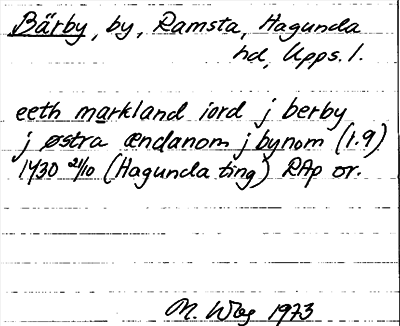 Bärby, by, Ramsta, Hagunda
hd, Upps. l.
eeth markland iord j berby
j østra ændanom j bynom (r.9)
1430 21/10 (Hagunda ting) RAp or.
M. Wbg 1973